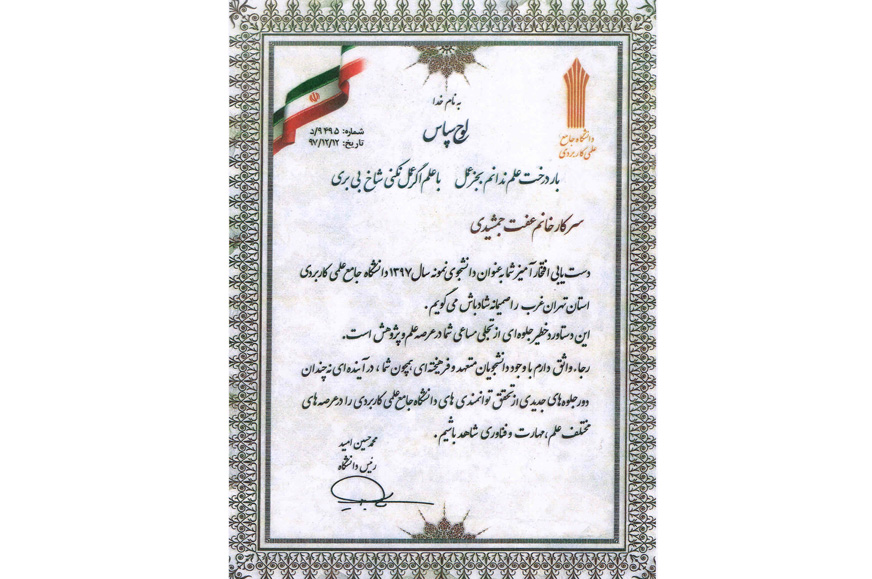 به نام خدا
لوح سپاس
دانشگاه جامع
علمی کاربردی
شماره: ۹۴۹۵/د
تاریخ: ۹۷/۱۲/۱۲
بار درخت علم ندانم بجز عمل با علم اگر عمل نکنی شاخ بی بری
سرکار خانم عفت جمشیدی
دست یابی افتخار آمیز شما به عنوان دانشجوی نمونه سال ۱۳۹۷ دانشگاه جامع علمی کاربردی
استان تهران غرب را صمیمانه شادباش می گویم.
این دستاورد خطیر جلوه ای از تجلی مساعی شما در عرصه علم و پژوهش است.
رجاء واثق دارم با وجود دانشجویان متعهد و فرهیخته ای همچون شما، در آینده ای نه چندان
دور جلوه های جدیدی از تحقق توانمندی های دانشگاه جامع علمی کاربردی را در عرصه های
مختلف علم، مهارت و فناوری شاهد باشیم.
محمدحسین امید
رئیس دانشگاه